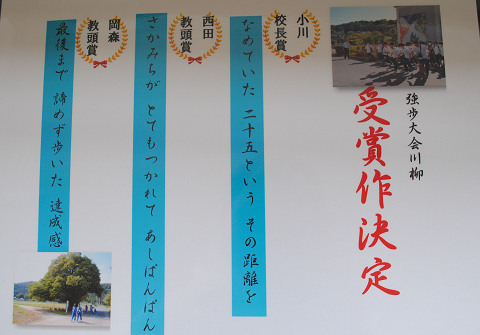 強歩大会川柳
受賞作決定
小川
校長賞
なめていた 二十五という その距離を
西田
教頭賞
さかみちが とてもつかれて あしぱんぱん
岡森
教頭賞
最後まで 諦めず歩いた 達成感